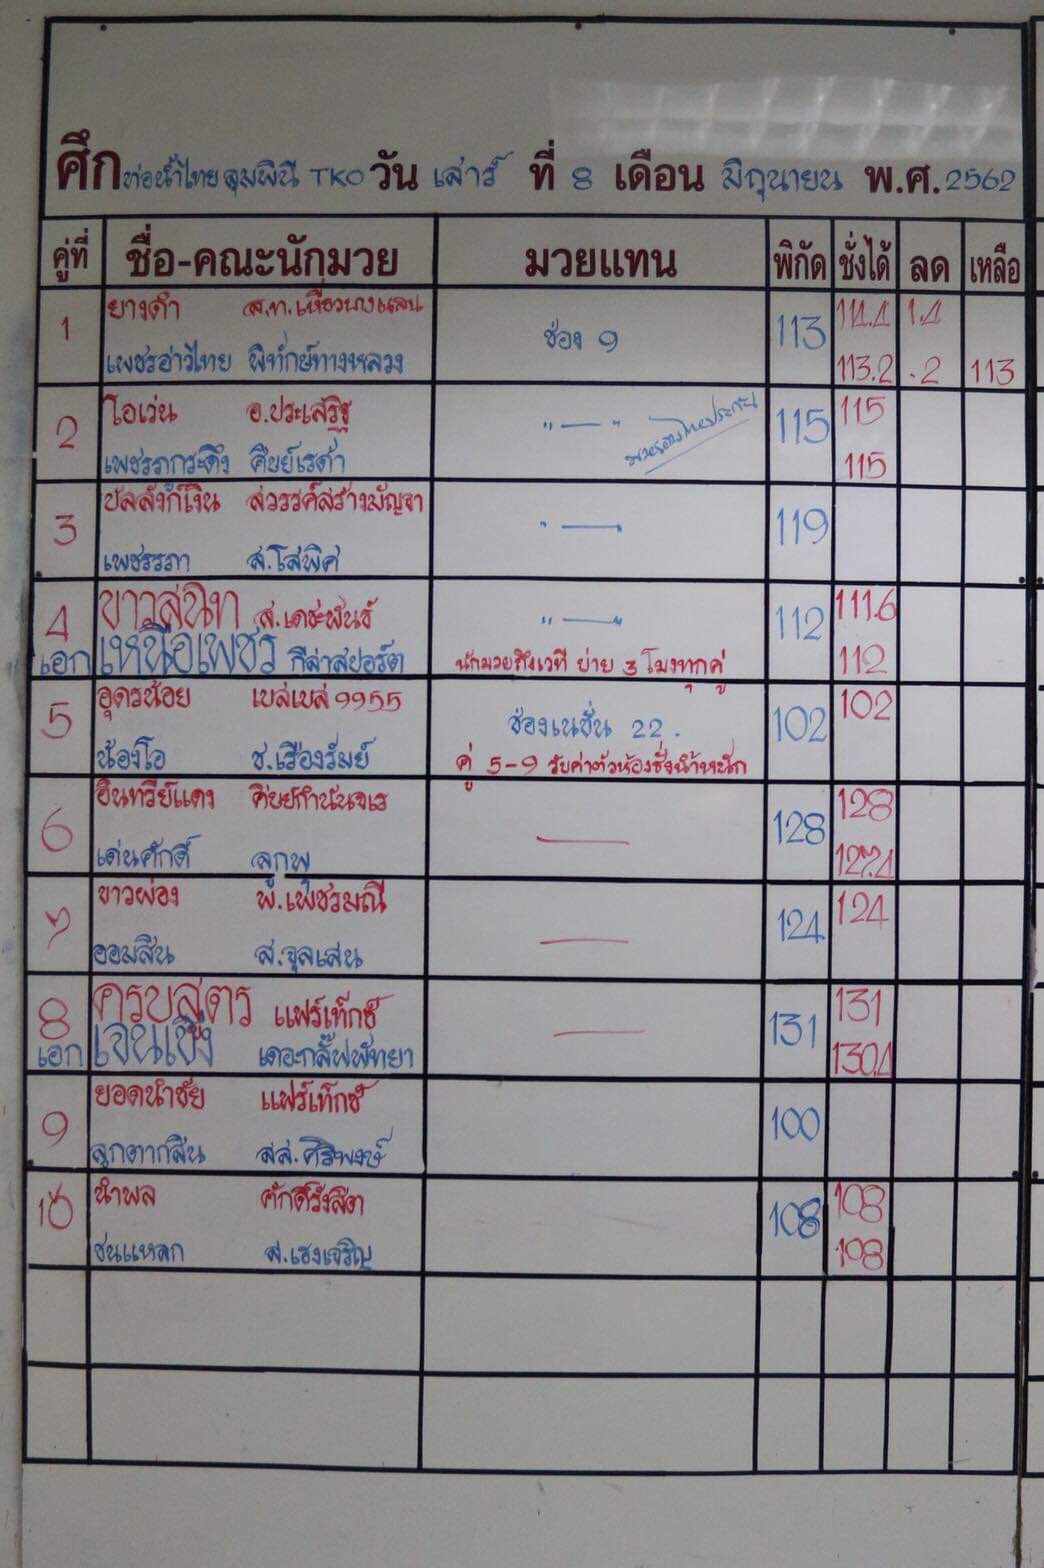 ศึก ท่อน้ำไทย ลุมพินี TKO วัน เสาร์ ที่ 8 เดือน มิถุนายน พ.ศ. 2562
คู่ที่ ชื่อ-คณะนักมวย มวยแทน พิกัด ชั่งได้ ลด เหลือ
1 ยางดำ 113 114.4 1.4
เพชรอ่าวไทย พิทักษ์ทางหลวง ช่อง 9 113.2 .2 113
2 โอเว่น อ.ประเสริฐ " — " 115 115
เพชรภูกระดึง ศิษย์เรด้า 115
3 บัลลังก์เงิน สวรรค์สร้างมัญจา 119
เพชรรภา ส.โสพิศ
4 ขาวสนิท ส.เดชะพันธ์ " — " 112 111.6
เอก เหนือเพชร กีล่าสปอร์ต นักมวยถึงเวที บ่าย 3 โมงทุกคู่ 112
5 อุดรน้อย เบสเบส 9955 ช่องเนชั่น 22. 102 102
น้องโอ ช.เรืองรัมย์ คู่ 5-9 รับค่าตัวห้องชั่งน้ำหนัก
6 อินทรีย์แดง ศิษย์กำนันจเร — 128 128
เด่นศักดิ์ ลูกพุ
7 ขาวผ่อง พ.เพชรมณี — 124 124
ออมสิน ส.จุลเสน
8 ครบสูตร แฟร์เท็กซ์ — 131 131
เอก เจนเชิง เดอะกลั๊ฟพัทยา 130.4
9 ยอดนำชัย แฟร์เท็กซ์ 100
ลูกตากสิน สส.ศิริพงษ์
10 นำพล ศักดิ์รังสิต 108 108
ชนแหลก ส.เฮงเจริญ 108